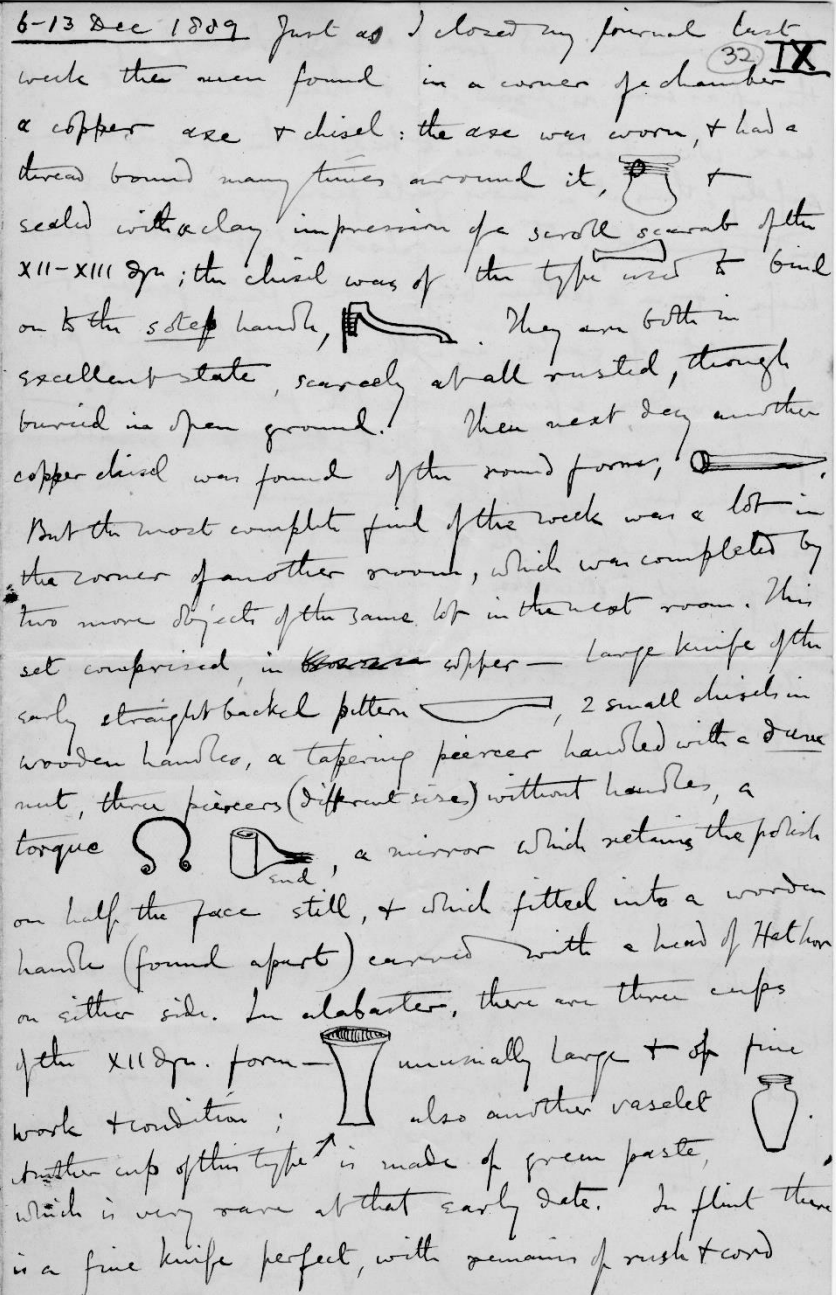 6-13 Dec 1889 Just as I closed my journal last
32 IX
week the men found in a corner of a chamber
a copper axe & chisel: the axe was worn, & had a
thread bound many times around it, &
sealed with a clay impression of a scroll scarab of the
XII-XIII dyn; the chisel was of the type used to bind
on to the step handle, . They are both in
excellent state, scarcely at all rusted, though
buried in open ground. Then next day another
copper chisel was found of the round form, .
But the most complete find of the week was a lot in
the corner of another room, which was completed by
two more objects of the same lot in the next room. This
set comprised, in copper — large knife of the
early straight backed pattern , 2 small chisels in
wooden handles, a tapering piercer handled with a dum
nut, three piercers (different sizes) without handles, a
torque , a mirror which retains the polish
end
on half the face still, & which fitted into a wooden
handle (found apart) carved with a head of Hathor
on either side. In alabaster, there are three cups
of the XII dyn. form — unusually large & of fine
work & condition; also another vaselet .
Another cup of this type is made of green paste,
which is very rare at that early date. In flint there
is a fine knife perfect, with remains of rush & cord